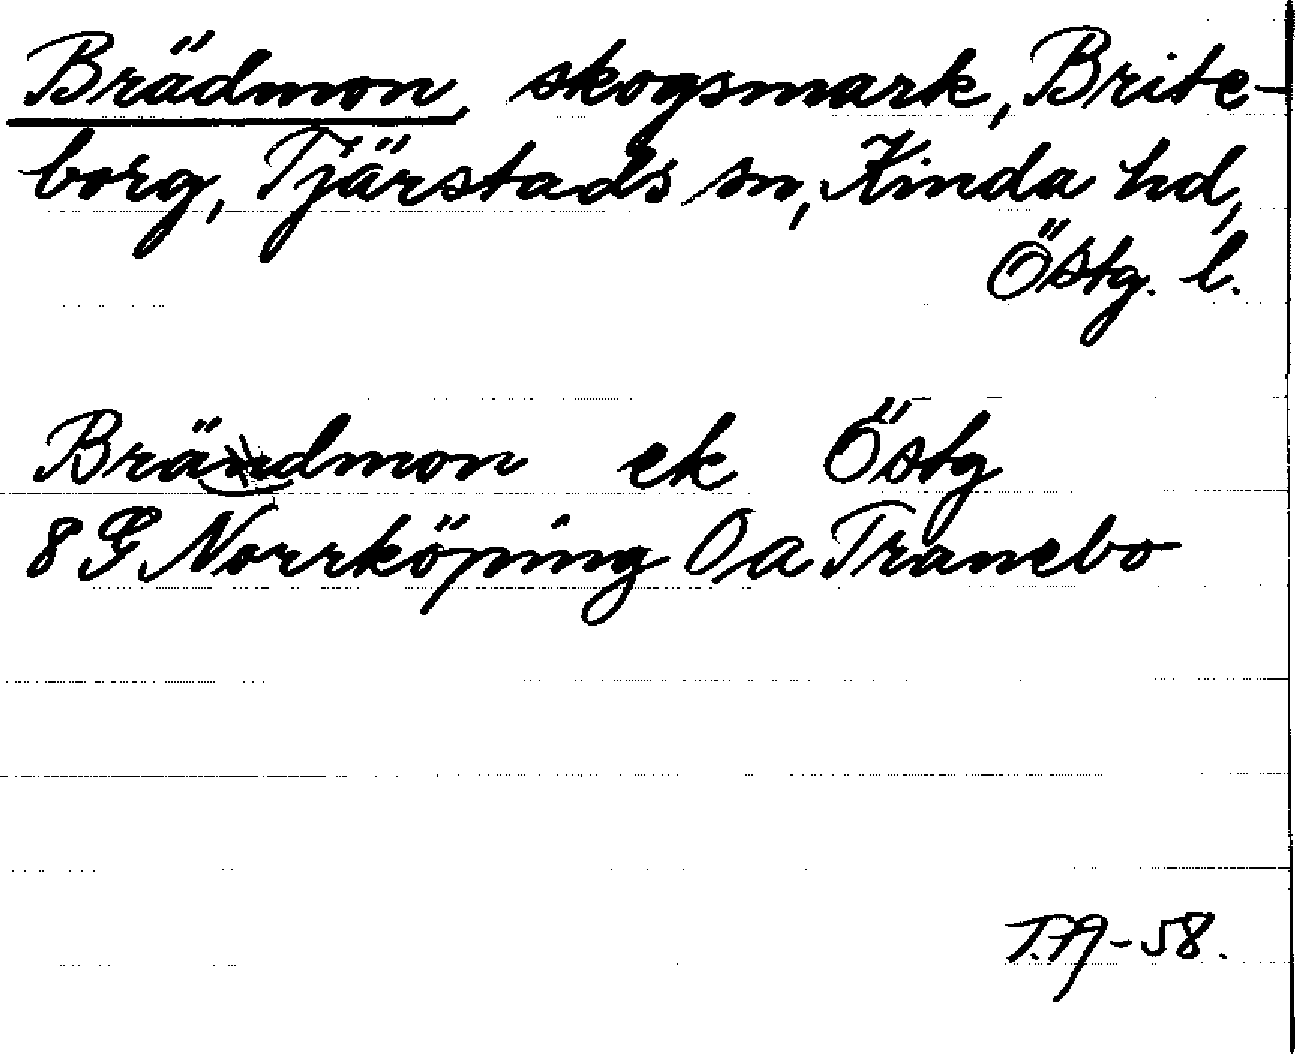 Brädmon, skogsmark, Brite-
borg, Tjärstads sn, Kinda hd,
Östg. l.
Brändmon ek Östg
8 G Norrköping O a Tranebo
-58.